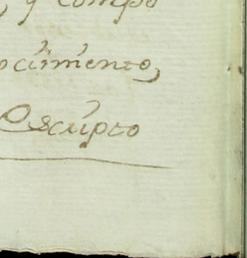 y compo
ocimiento,
Escripto